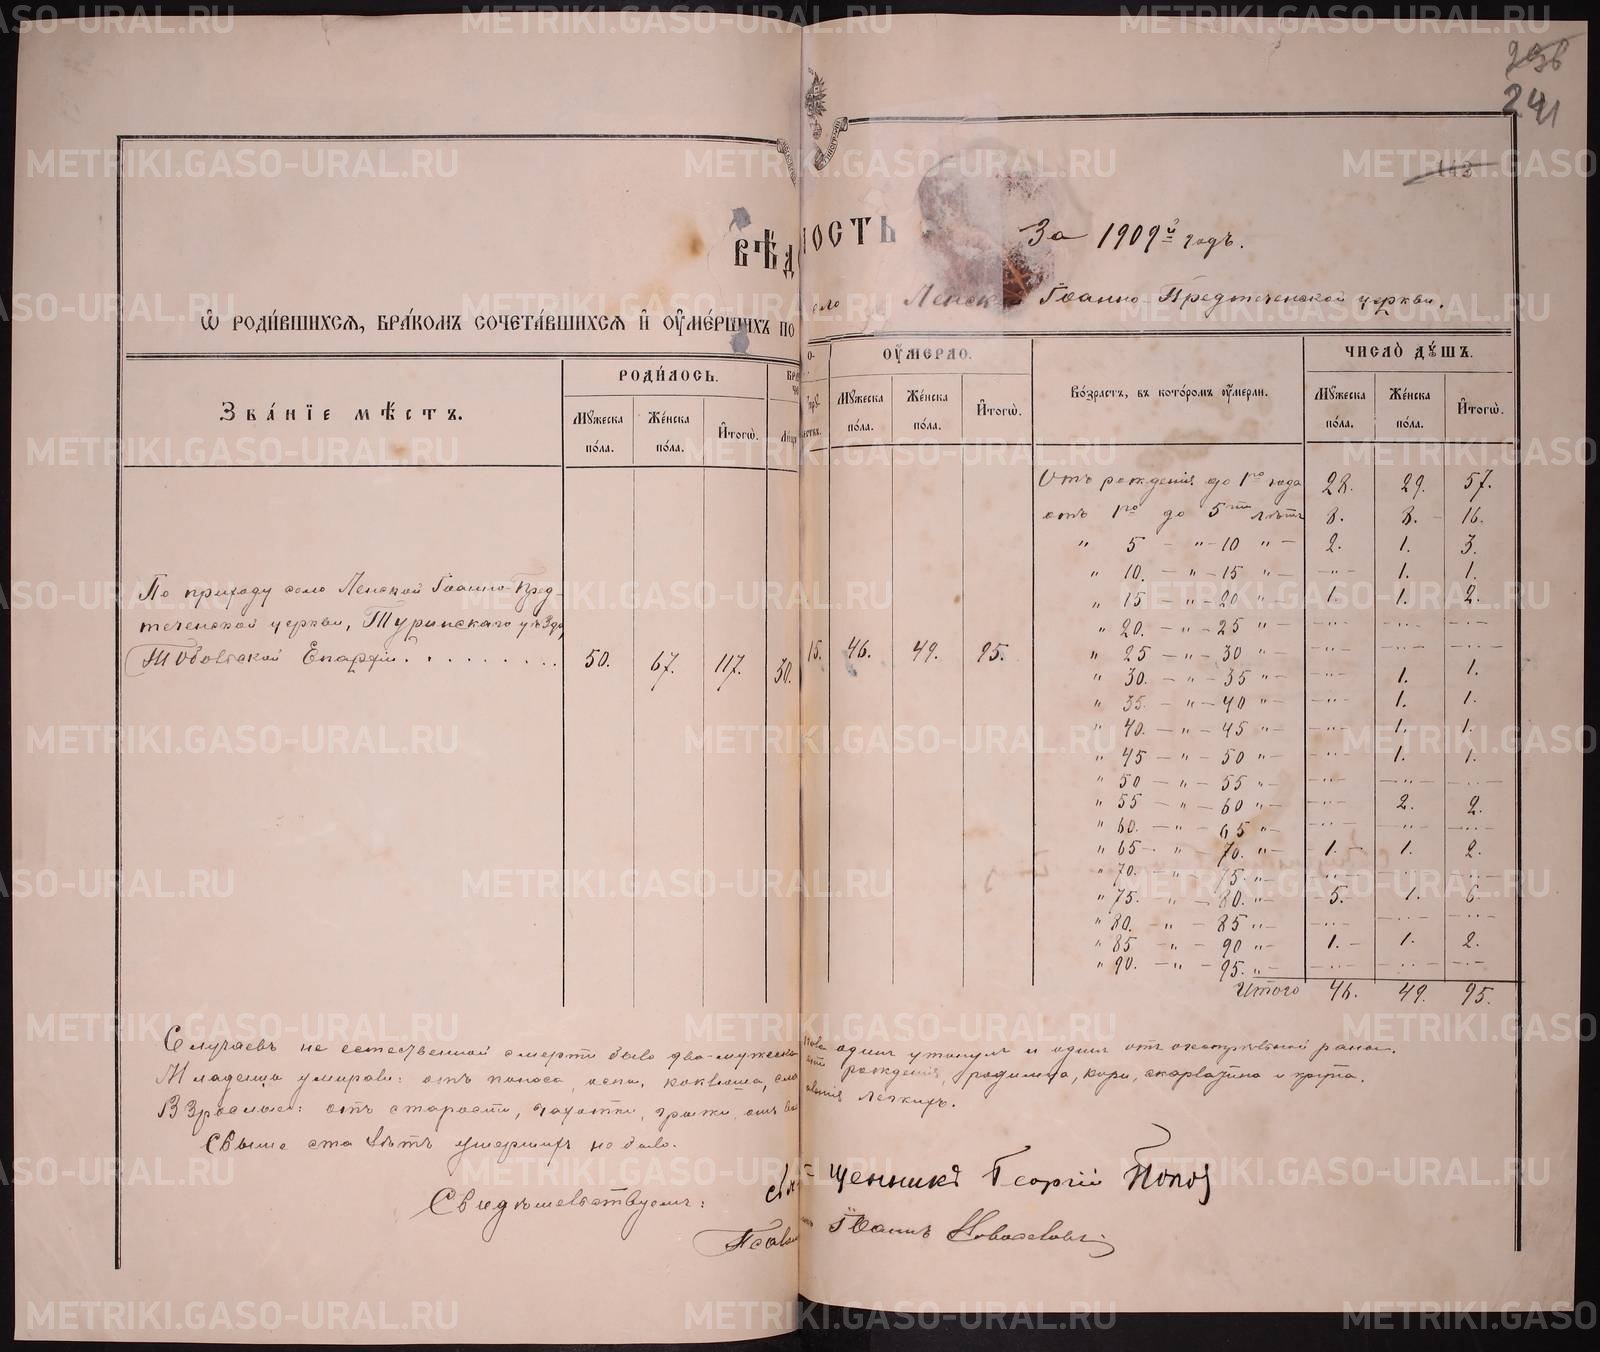 296
241
142
ВѢДОМОСТЬ
За 1909й годъ.
Ѡ РОДИВШИХСЯ, БРАКОМЪ СОЧЕТАВШИХСЯ И ОУМЕРШИХЪ ПО
село Ленской Іоанно-Предтеченской церкви.
ЗВАНІЕ МѢСТЪ.
РОДИЛОСЬ.
Мужеска пола.
Женска пола.
Итогѡ.
ОУМЕРЛО.
Мужеска пола.
Женска пола.
Итогѡ.
Возрастъ, въ которомъ оумерли.
ЧИСЛО ДУШЪ.
Мужеска пола.
Женска пола.
Итогѡ.
По приходу село Ленской Іоанно-Пред-
теченской церкви, Туринскаго уѣзда,
Тобольской Епархіи. . . . . . . . . 50. 67. 117. 30. 15. 46. 49. 95.
Отъ рожденія до 1го года 28. 29. 57.
отъ 1го до 5ти лѣтъ 8. 8. 16.
" 5 — " — 10 " — 2. 1. 3.
" 10. — " — 15 " — — " — 1. 1.
" 15 — " — 20 " — 1. 1. 2.
" 20. — " — 25 " — — " — — " — — " —
" 25 — " — 30 " — — " — — " — — " —
" 30. — " — 35 " — — " — 1. 1.
" 35. — " — 40 " — — " — 1. 1.
" 40. — " — 45 " — — " — 1. 1.
" 45 — " — 50 " — — " — 1. 1.
" 50 — " — 55 " — — " — — " — — " —
" 55 — " — 60 " — — " — 2. 2.
" 60. — " — 65 " — — " — — " — — " —
" 65 — " — 70. " — 1. — 1. 2.
" 70. — " — 75. " — — " — — " — — " —
" 75. — " — 80. " — 5. 1. 6.
" 80. — " — 85 " — — " — — " — — " —
" 85 — " — 90 " — 1. — 1. 2.
" 90. — " — 95. " — — " — — " — — " —
Итого 46. 49. 95.
Случаевъ не естественной смерти было два-мужеска пола одинъ утонулъ и одинъ отъ огнестрѣльной раны.
Младенцы умирали: отъ поноса, оспы, коклюша, рожденія, родимца, кори, скарлатина и крупа.
Взрослые: отъ старости, чахотки, грыжи, отъ воспаленія легкихъ.
Свыше ста лѣтъ умершихъ не было.
Свидѣтельствуемъ: Священникъ Георгій Попов
Псаломщикъ Іоаннъ Новоселовъ
METRIKI.GASO-URAL.RU